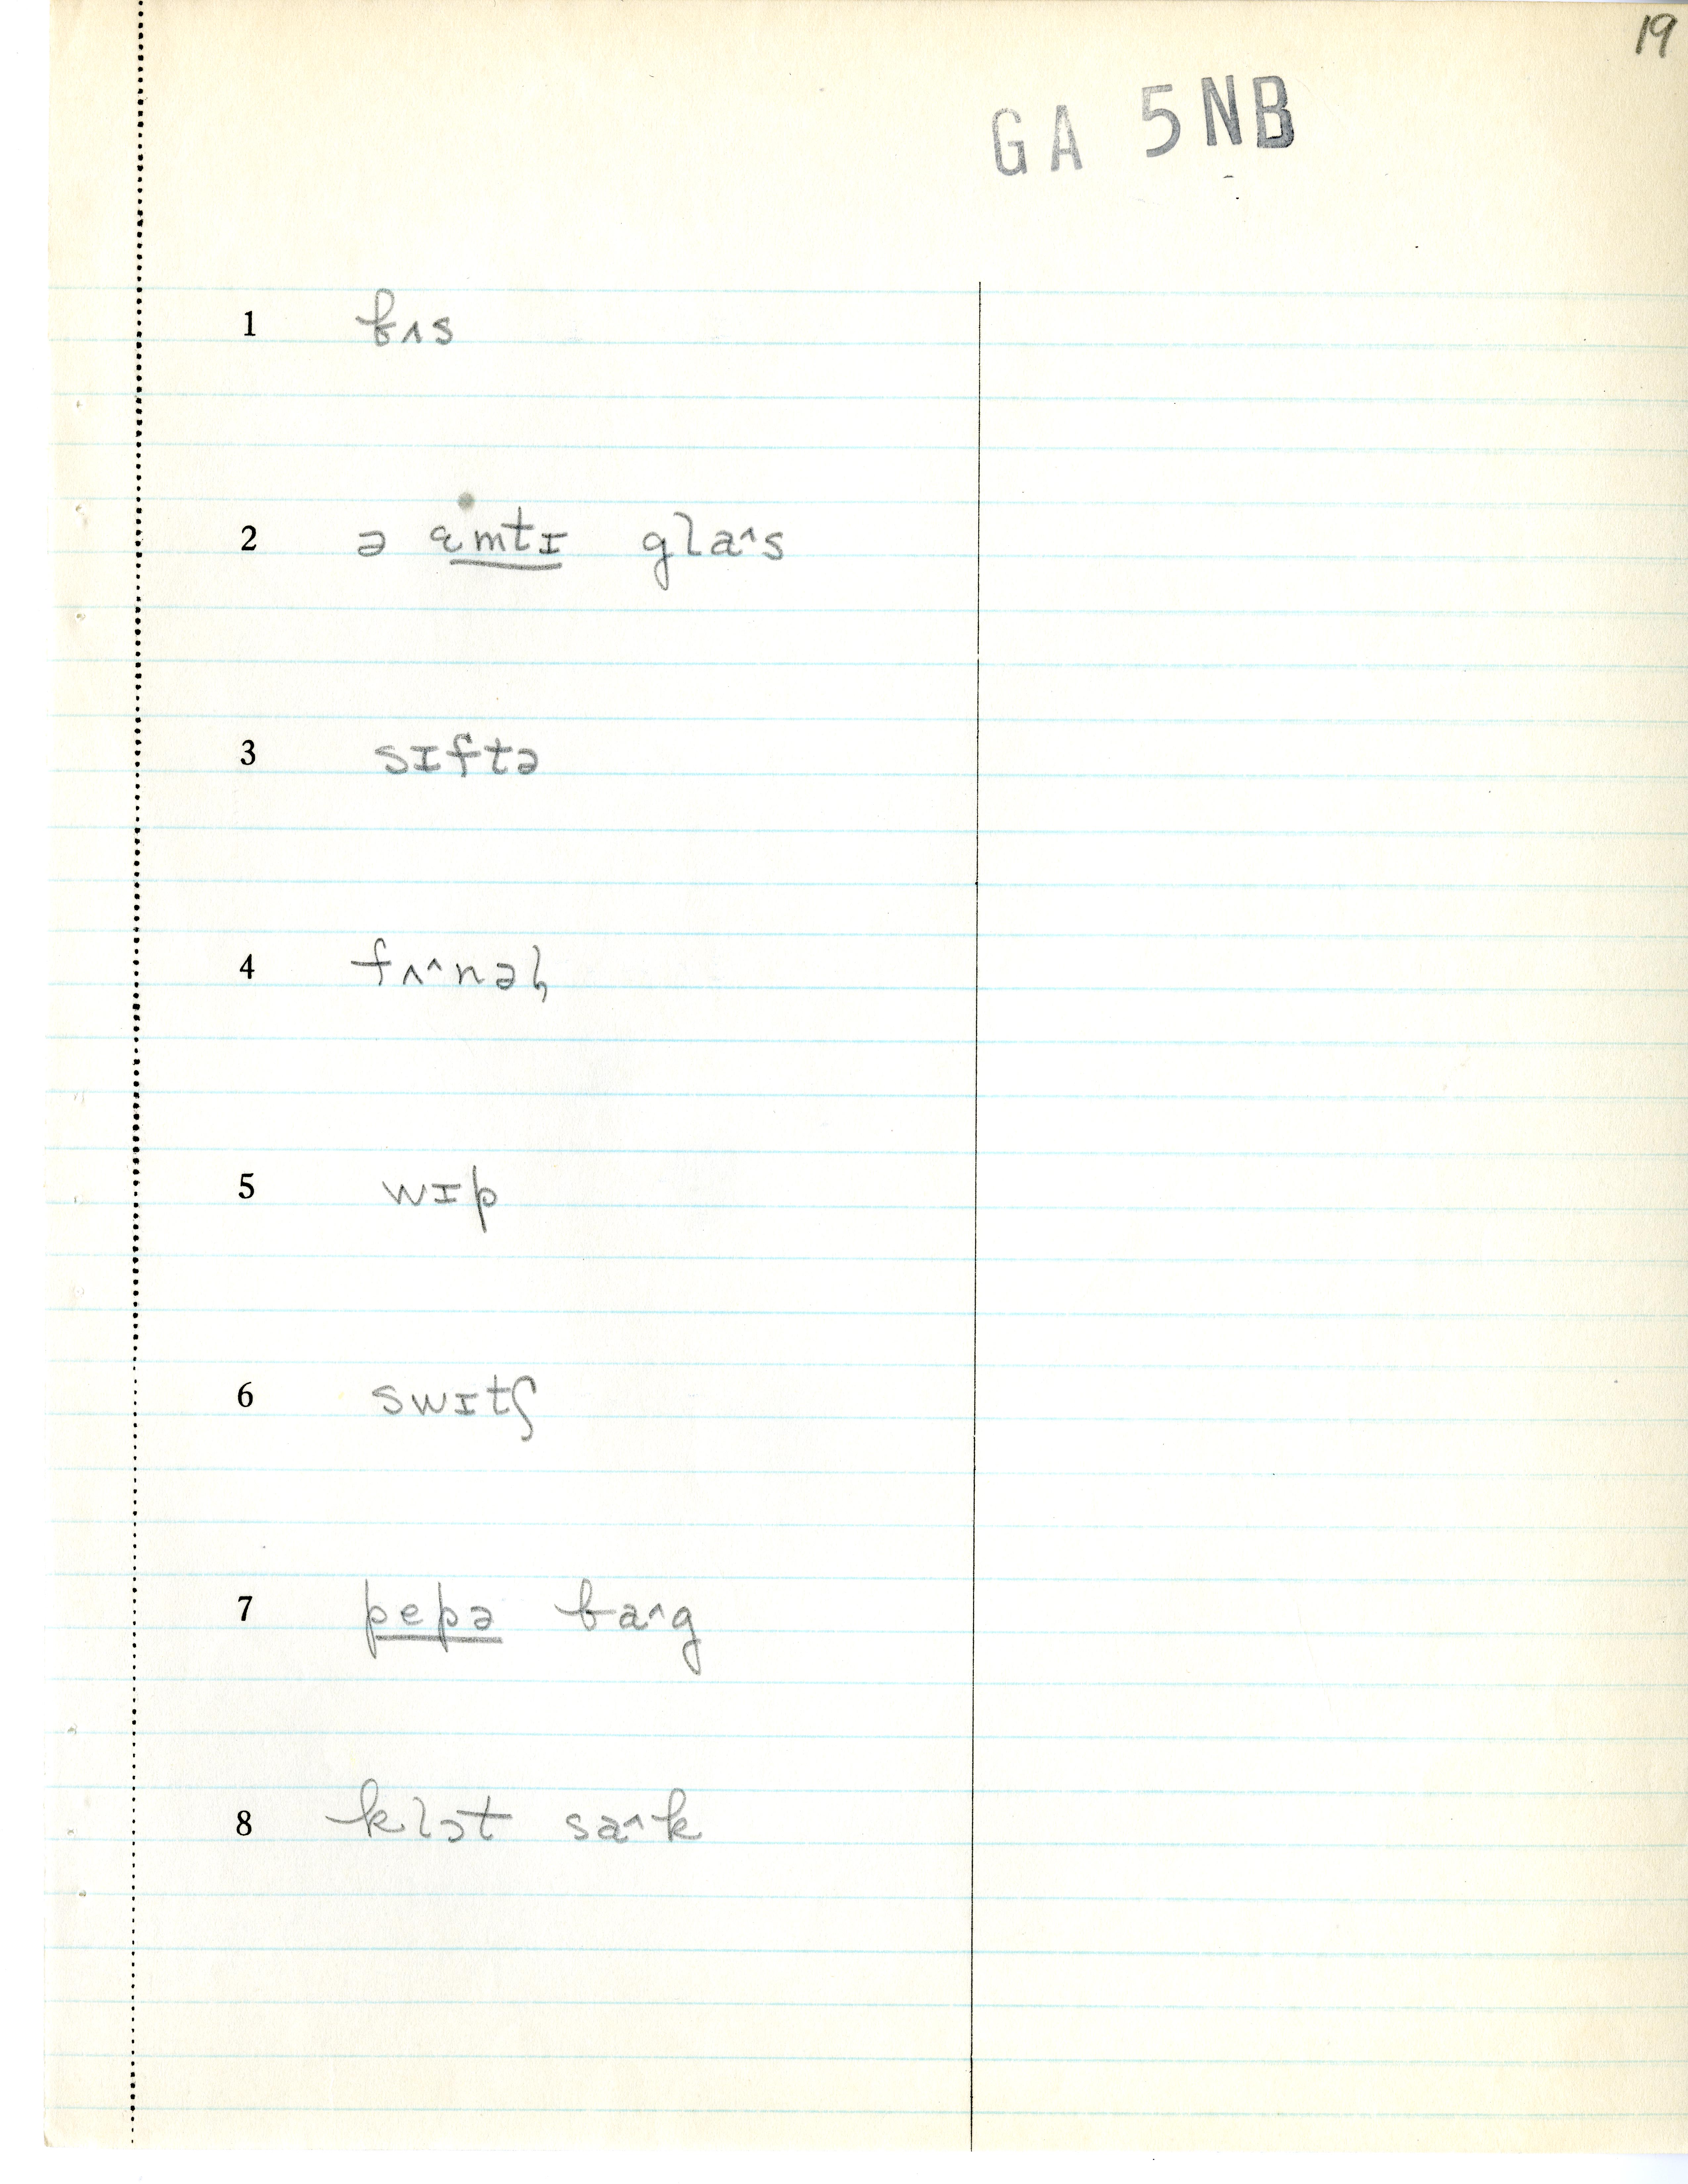 19
GA 5NB
1 bʌs
2 ə ɛmtɪ gla^s
3 sɪftə
4 fʌ^nəɫ
5 wɪp
6 swɪtʃ
7 pepə ba^g
8 klɔt sa^k